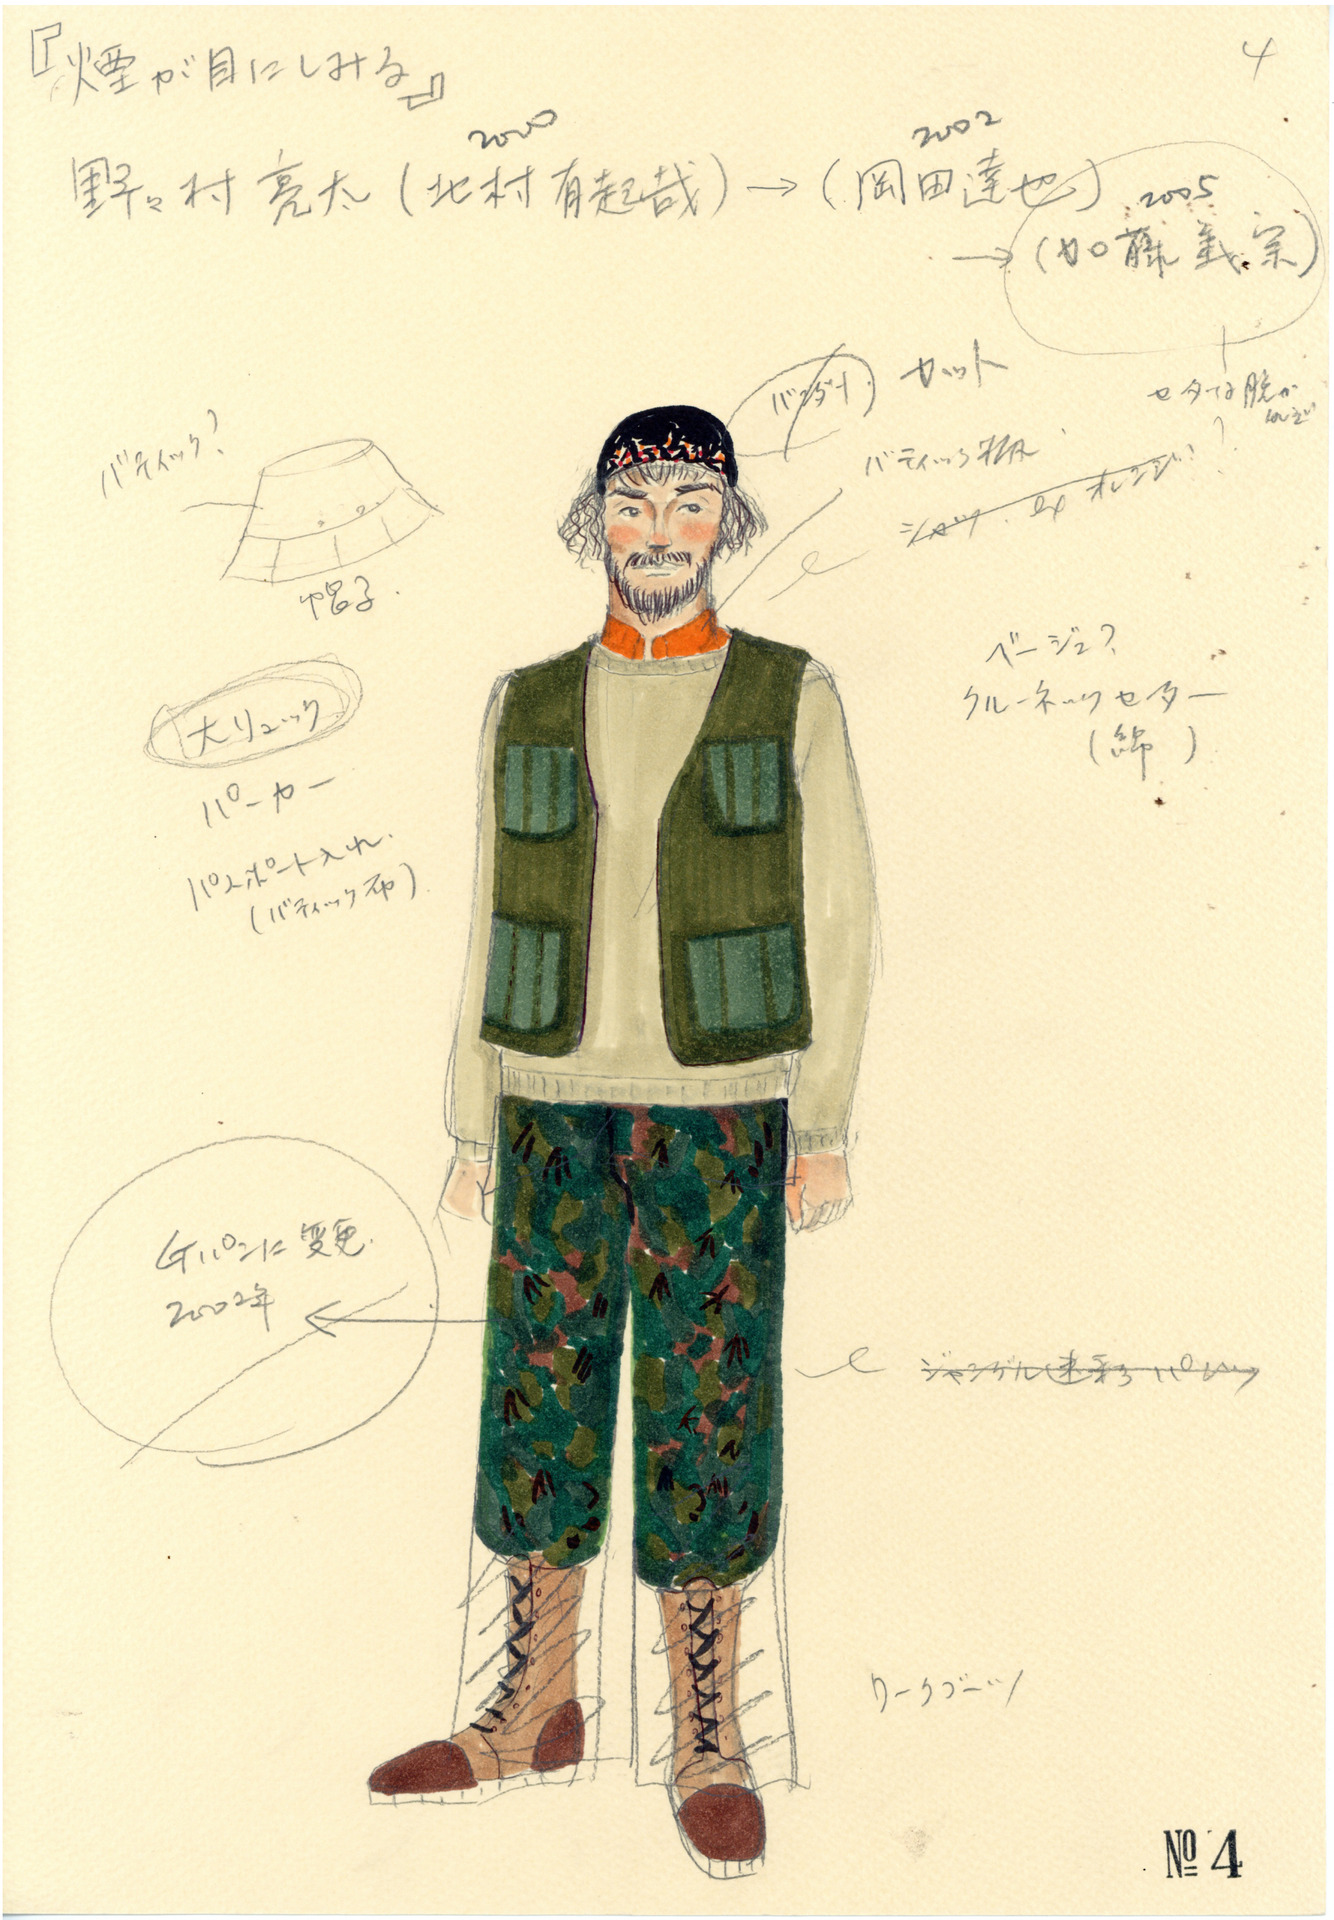 『煙が目にしみる』
4
2000
2002
野々村 亮太(北村有起哉)→(岡田達也)
2005
→(加藤義宗)
セーターは脱が
バンダナ カット
バティック?
バティック柄
シャツ or オレンジ?
帽子
ベージュ?
クルーネックセーター
(綿)
大リュック
パーカー
パスポート入れ
(バティック布)
Gパンに変更
2002年
ジャングル迷彩パンツ
ワークブーツ
№4